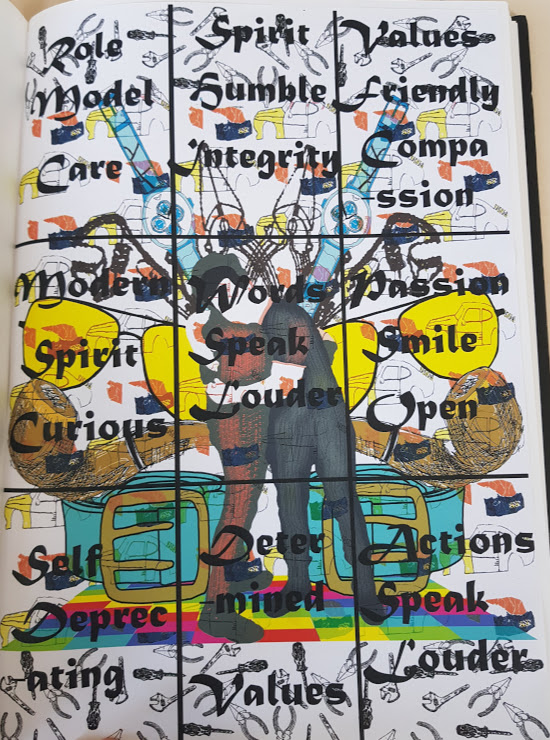 Role
Model
Care
Spirit
Humble
Integrity
Values
Friendly
Compa
-ssion
Modern
Spirit
Curious
Words
Speak
Louder
Passion
Smile
Open
Self
Deprec
-ating
Deter
-mined
Values
Actions
Speak
Louder